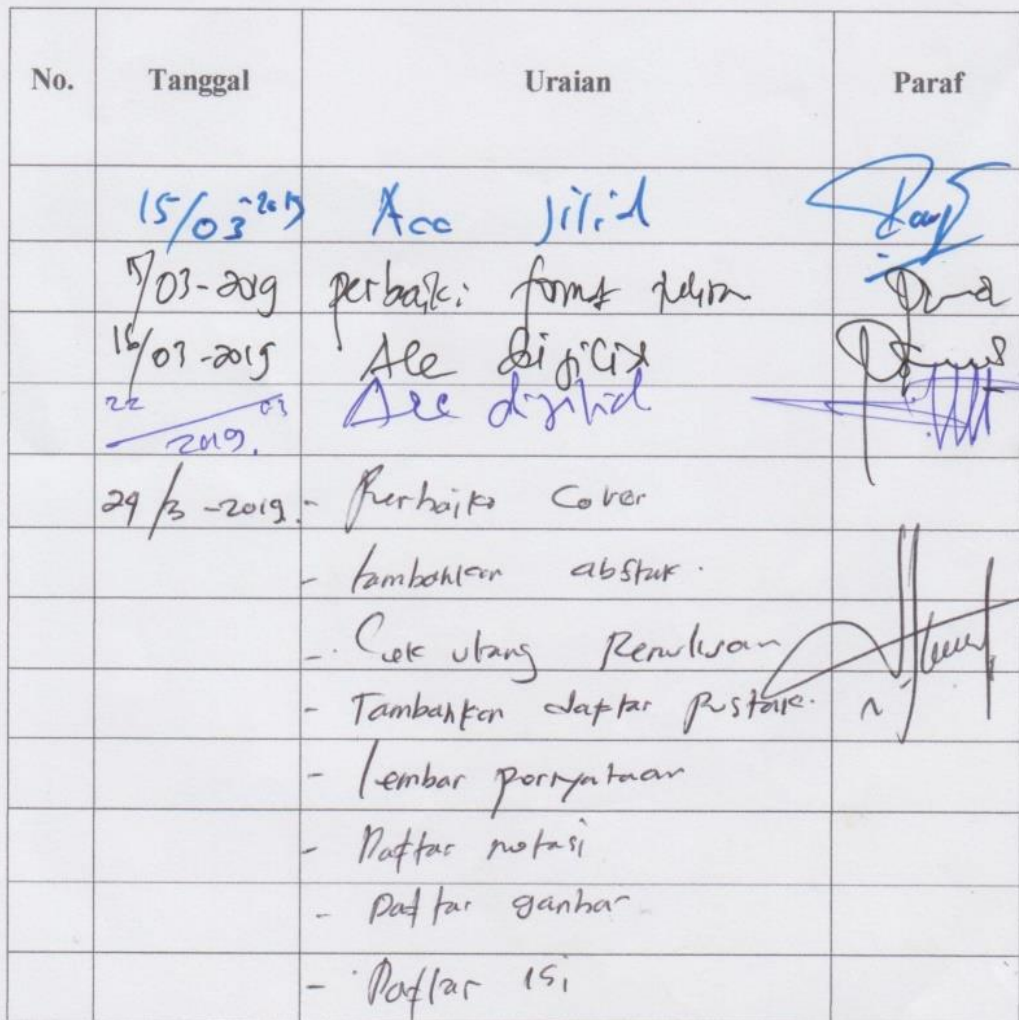 No. Tanggal Uraian Paraf
15/03-2019 Acc jilid
/03-2019 perbaiki format
18/03-2019 Acc dijilid
22/03 2019. Acc dijilid
29/3-2019. - Perbaiki Cover
- tambahkan abstrak.
- Cek ulang Penulisan
- Tambahkan daftar Pustaka.
- lembar pernyataan
- Daftar notasi
- Daftar gambar
- Daftar isi